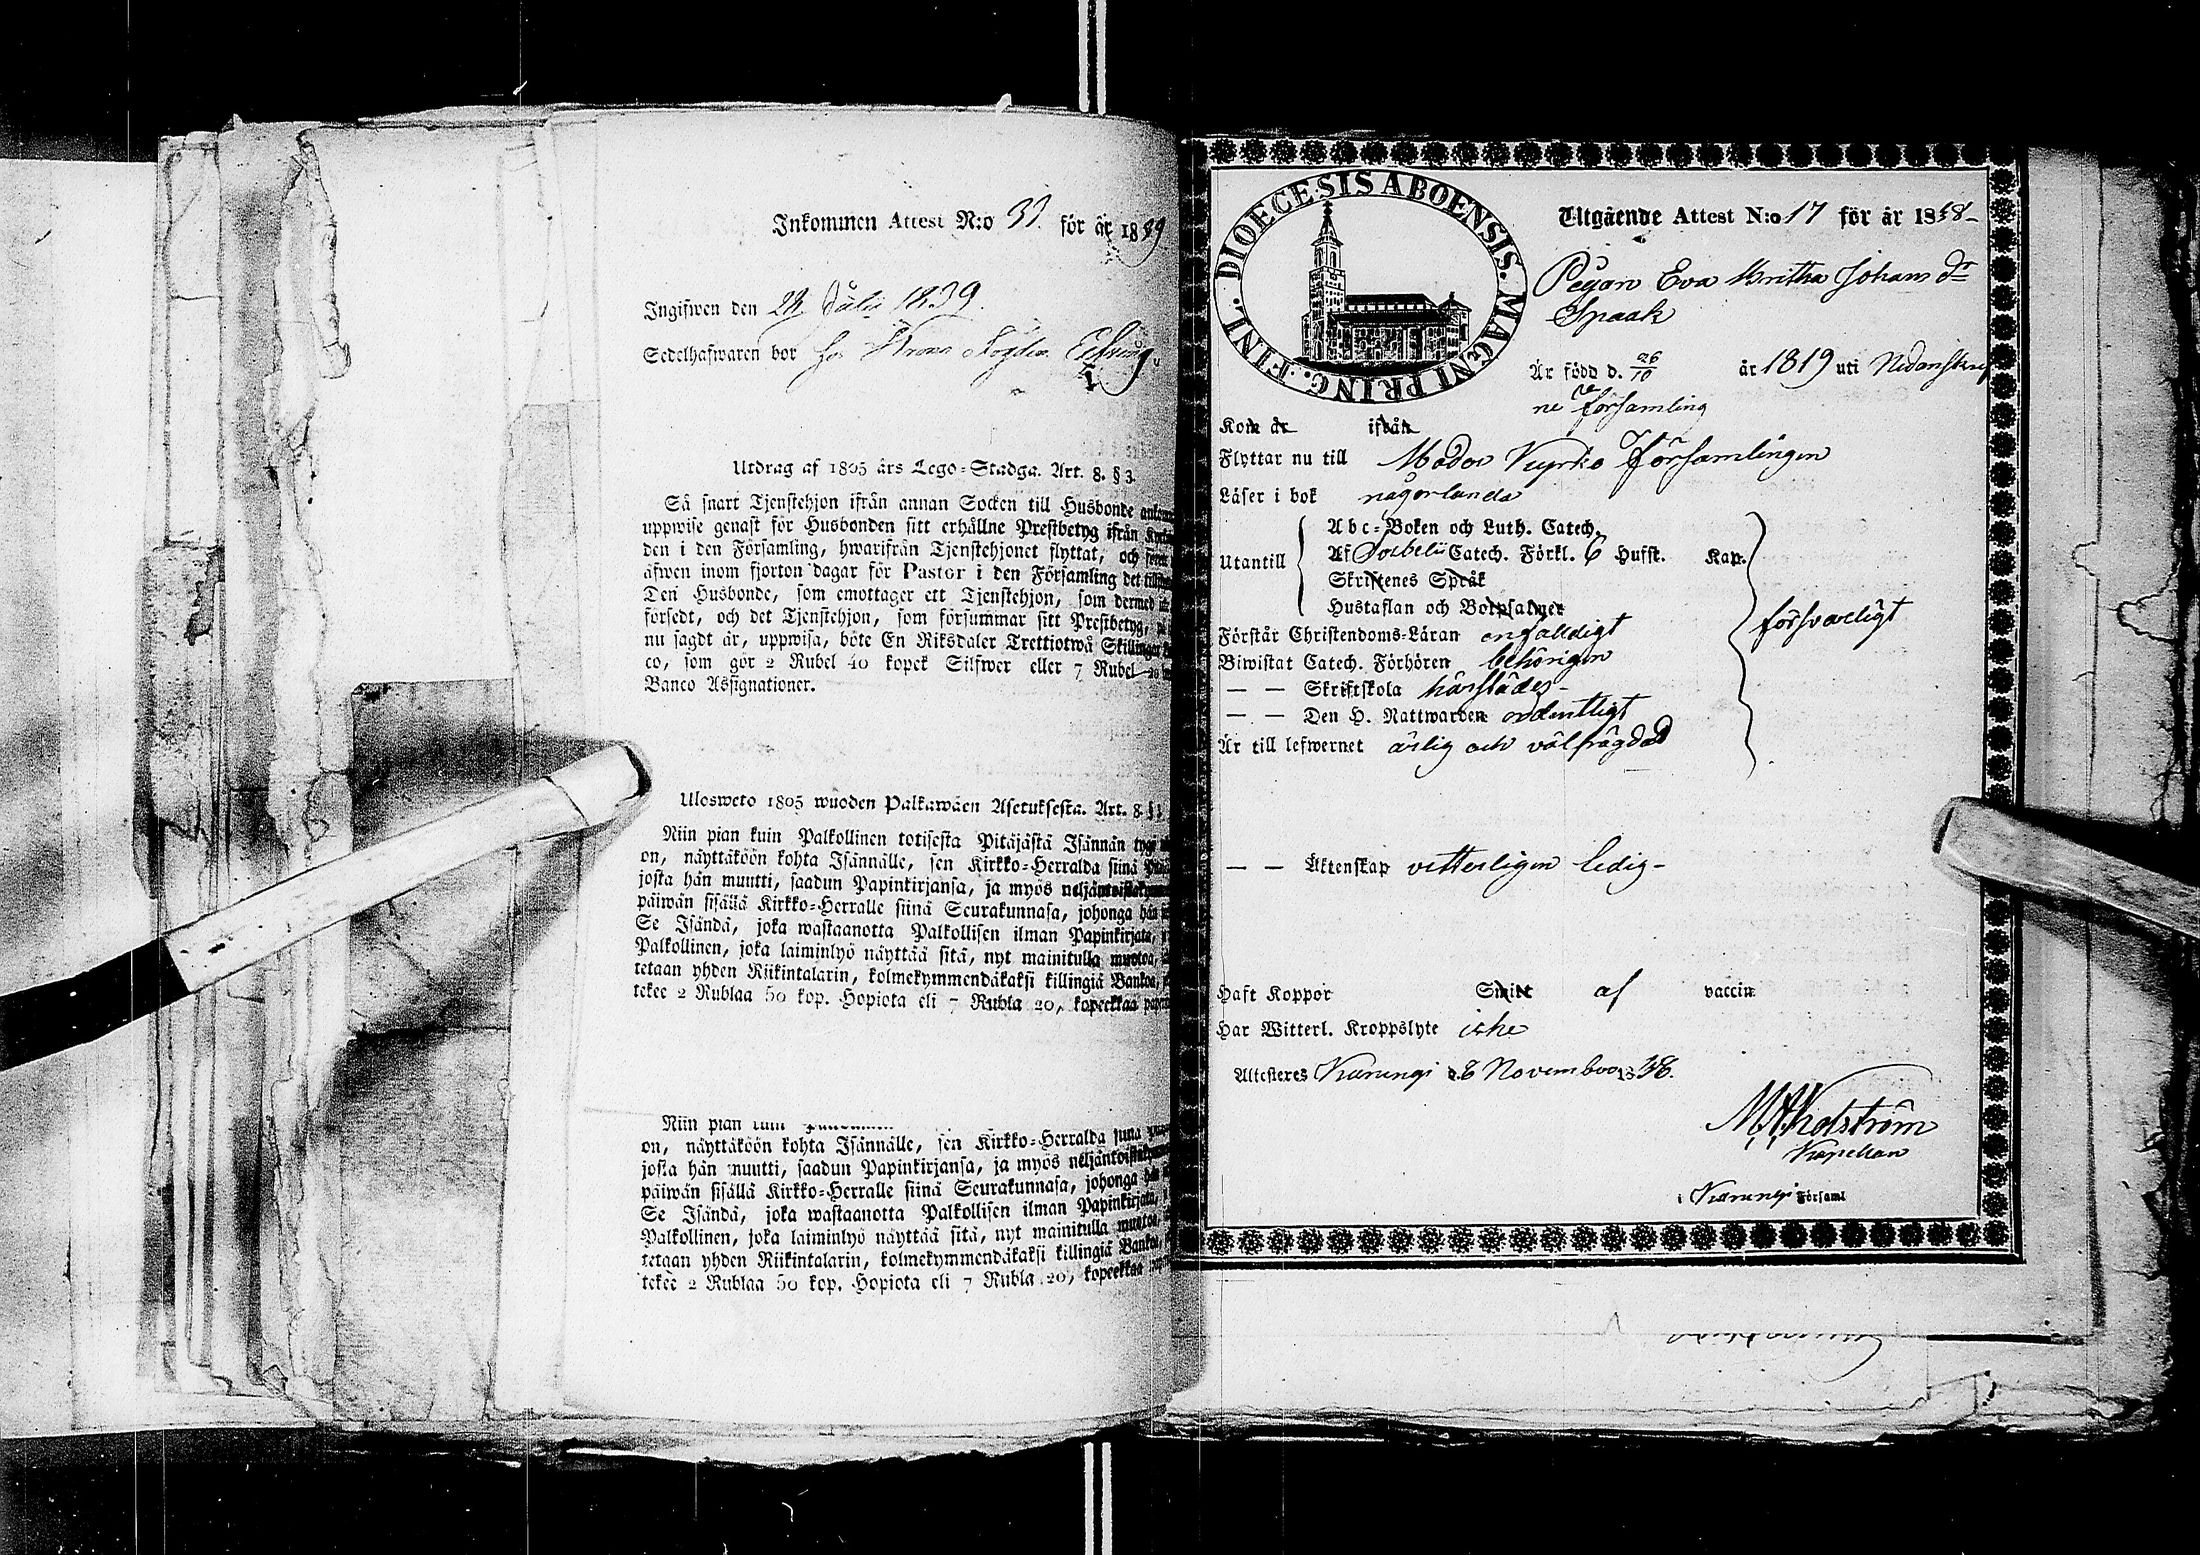 Inkommen Attest N:o 33 för år 1839
Ingifwen den 23 Juli 1839.
Sedelhafwaren bor hos Krono
Utdrag af 1805 års Lego-Stadga. Art. 8. § 3.
Så snart Tjenstehjon ifrån annan Socken till Husbonde
uppwise genast för Husbonden sitt erhållne Prestbetyg ifrån
den i den Församling, hwarifrån Tjenstehjonet flyttat, och
äfwen inom fjorton dagar för Pastor i den Församling det
Den Husbonde, som emottager ett Tjenstehjon, som dermed
försedt, och det Tjenstehjon, som försummar sitt Prestbetyg,
nu sagdt är, uppwisa, böte En Riksdaler Trettiotwå Skillingar
co, som gör 2 Rubel 40 kopek Silfwer eller 7 Rubel 20
Banco Assignationer.
Ulosweto 1805 wuoden Palkawäen Asetuksesta. Art. 8 §
Niin pian kuin Palkollinen totisesta Pitäjästä Isännän tygö
on, näyttäköön kohta Isännälle, sen Kirkko-Herralda siinä
josta hän muutti, saadun Papinkirjansa, ja myös
päiwän sisällä Kirkko-Herralle siinä Seurakunnasa, johonga hän
Se Isändä, joka wastaanotta Palkollisen ilman Papinkirjata,
Palkollinen, joka laiminlyö näyttää sitä, nyt mainitulla muotoa,
tetaan yhden Riikintalarin, kolmekymmendäkaksi killingiä Bankoa,
tekee 2 Rublaa 50 kop. Hopiota eli 7 Rubla 20, kopeekkaa
Niin pian kuin
on, näyttäköön kohta Isännälle, sen Kirkko-Herralda siinä
josta hän muutti, saadun Papinkirjansa, ja myös
päiwän sisällä Kirkko-Herralle siinä Seurakunnasa, johonga
Se Isändä, joka wastaanotta Palkollisen ilman Papinkirjata,
Palkollinen, joka laiminlyö näyttää sitä, nyt mainitulla muotoa,
tetaan yhden Riikintalarin, kolmekymmendäkaksi killingiä Bankoa,
tekee 2 Rublaa 50 kop. Hopiota eli 7 Rubla 20, kopeekkaa
DIOECESIS ABOENSIS. MAGNI PRINC. FINL.
Utgående Attest N:o 17 för år 1838-
Pigan Eva Britha Johans dr
Spaak
Är född d. 26/10 år 1819 uti Nedanskrif
ne församling
Kom år ifrån
Flyttar nu till Moder Kyrko Församlingen
Läser i bok någorlunda
Abc-Boken och Luth. Catech.
Utantill Af Svebelii Catech. Förkl. 6 Hufst. Kap.
Skriftenes Språk
Hustaflan och Botpsalmer
försvarligt
Förstår Christendoms-Läran enfaldigt
Biwistat Catech. Förhören behörigen
— — Skriftskola härstädes-
— — Den H. Nattwarden ordentligt
Är till lefwernet ärlig och välfrägdad
— — Äktenskap vitterligen ledig-
Haft Koppor Smitt af vaccin
Har Witterl. Kroppslyte icke
Attesteres Karungi d. 6 November 1838.
Kapellan
i Karungi Församl